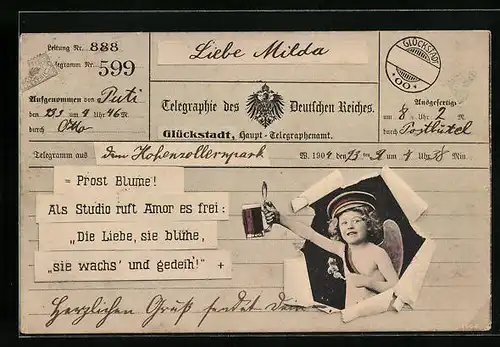 Leitung Nr. 888
Telegramm Nr. 599
Liebe Milda
GLÜCKSTADT
*OO*
Aufgenommen von Puti
den 23 5 um 9 Uhr 46 M.
durch Otto
Telegraphie des Deutschen Reiches.
Glückstadt, Haupt-Telegraphenamt.
Ausgefertigt
um 8 Uhr 2 M.
durch Postbüttel
Telegramm aus dem Hohenzollernpark W. 1904 den 23 ten 9 um 8 Uhr 58 Min
= Prost Blume!
Als Studio ruft Amor es frei:
„Die Liebe, sie blühe,
„sie wachs' und gedeih!" +
Herzlichen Gruß sendet Dein